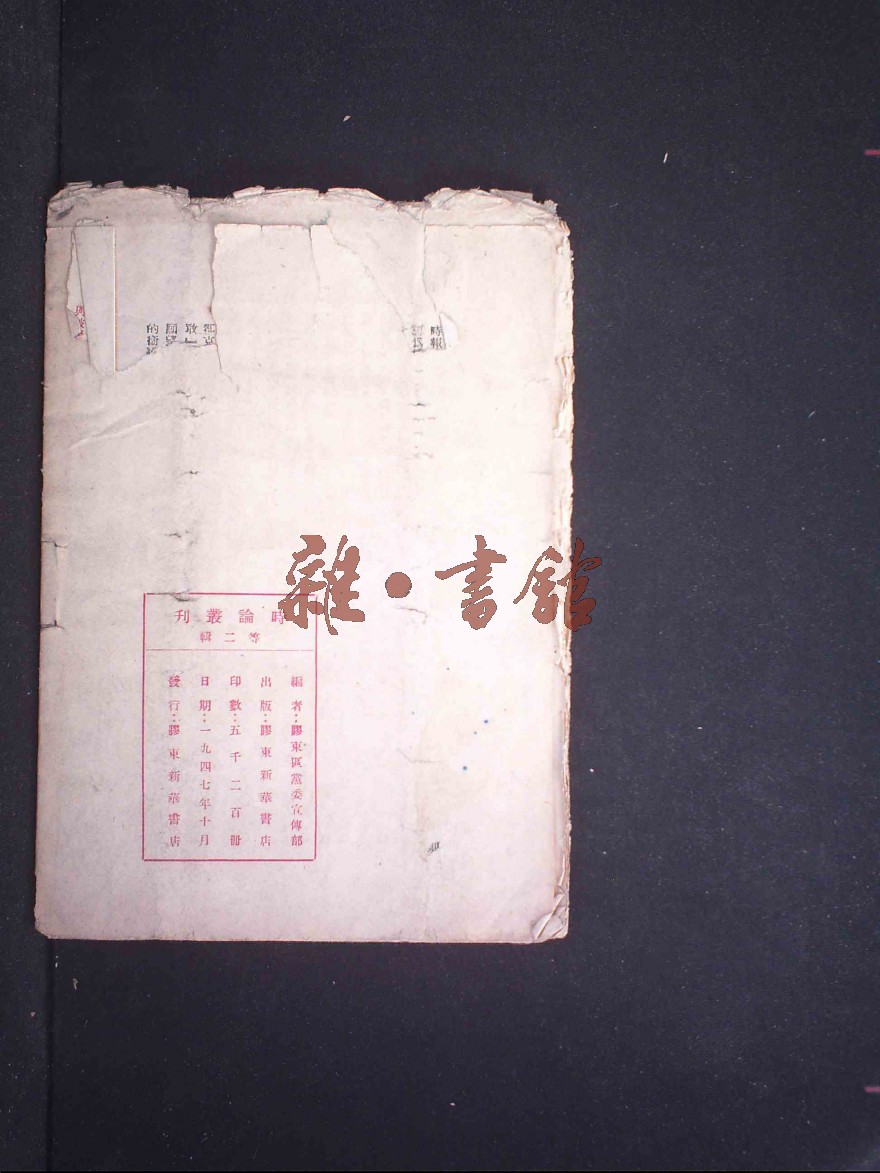 時報
江京
敢
國
的衛
雜·書館
時論叢刊
等二輯
編者：膠東區黨委宣傳部
出版：膠東新華書店
印數：五千二百冊
日期：一九四七年十月
發行：膠東新華書店